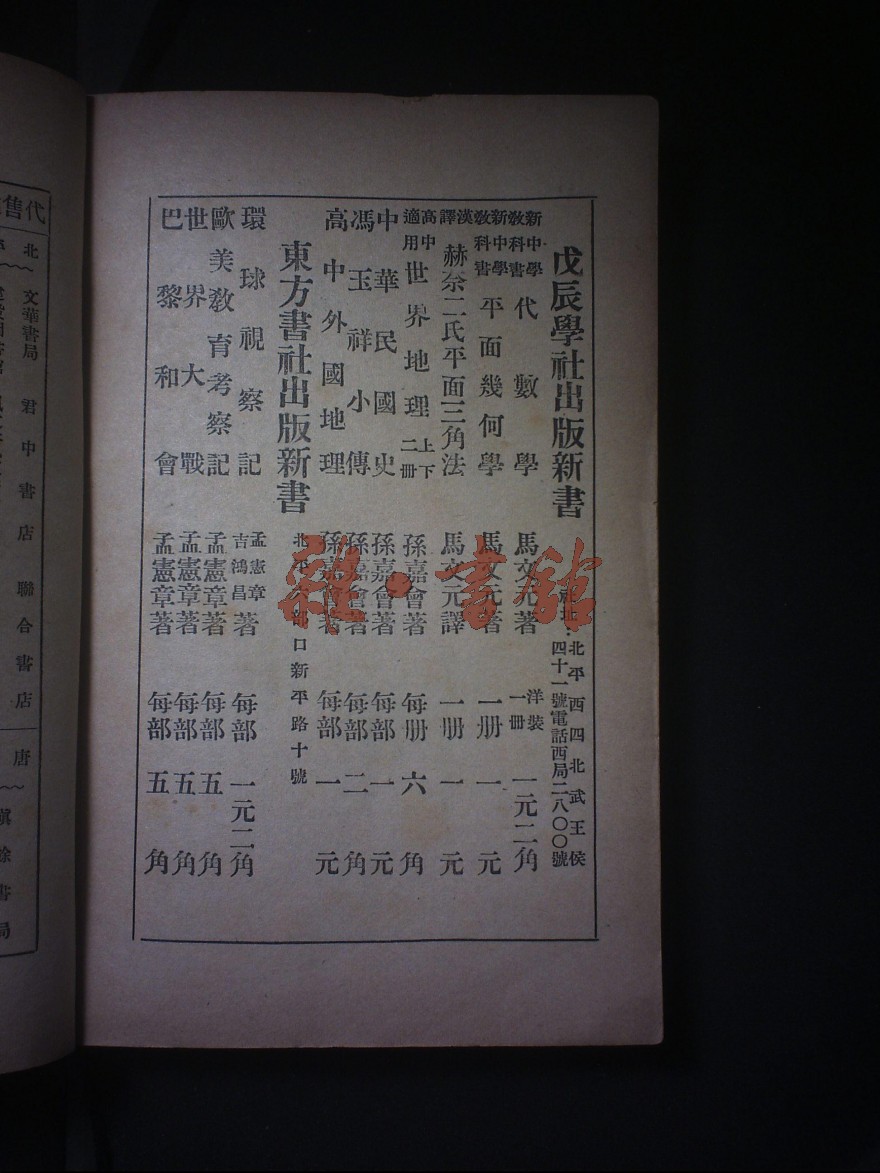 戊辰學社出版新書 社址：北平西四北武王侯
四十一號電話西局二八〇〇號
新中學教科書 代數學 馬文元著 洋裝一冊 一元二角
新中學教科書 平面幾何學 馬文元著 一冊 一元
漢譯 赫奈二氏平面三角法 馬文元譯 一冊 一元
高中適用 世界地理 上下二冊 孫嘉會著 每冊 六角
中華民國史 孫嘉會著 每部 一元
馮玉祥小傳 孫嘉會著 每部 二角
高中外國地理 孫嘉會著 每部 一元
東方書社出版新書 北平六部口新平路十號
環球視察記 孟憲章 吉鴻昌 著 每部 一元二角
歐美教育考察記 孟憲章著 每部 五角
世界大戰 孟憲章著 每部 五角
巴黎和會 孟憲章著 每部 五角
雜·書館
代售
北
文華書局 君中書店 聯合書店 唐